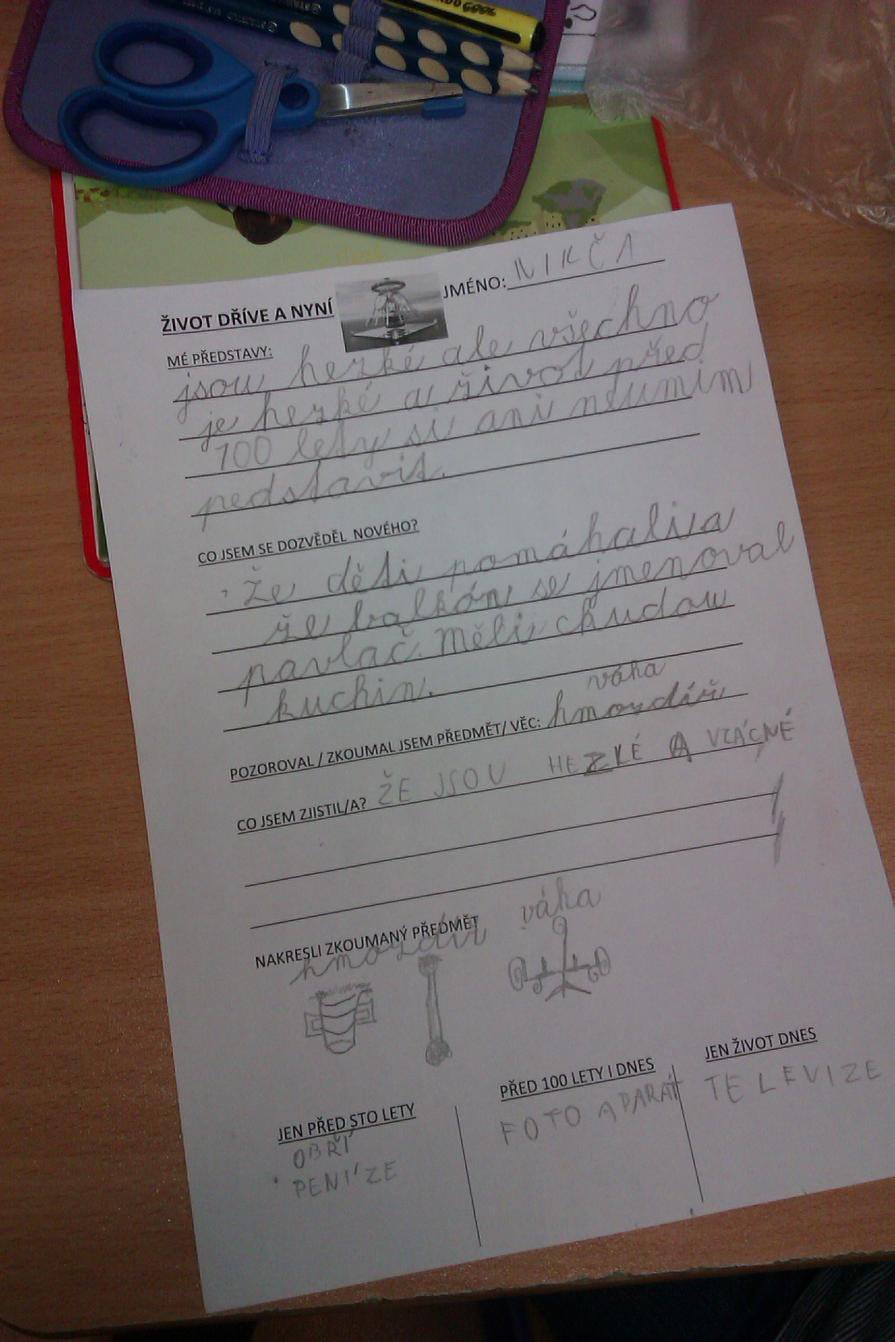 ŽIVOT DŘÍVE A NYNÍ
JMÉNO: NIKČA
MÉ PŘEDSTAVY:
jsou hezké ale všechno
je hezké a život před
100 lety si ani neumim
pedstavit.
CO JSEM SE DOZVĚDĚL NOVÉHO?
Že děti pomáhali a
že balkón se jmenoval
pavlač. Měli chudou
kuchin.
váha
POZOROVAL / ZKOUMAL JSEM PŘEDMĚT/ VĚC: hmozdíř
CO JSEM ZJISTIL/A? ŽE JSOU HEZKÉ A VZÁCNÉ
NAKRESLI ZKOUMANÝ PŘEDMĚT
hmozdíř váha
JEN PŘED STO LETY
OBŘÍ
PENÍZE
PŘED 100 LETY I DNES
FOTO APARÁT
JEN ŽIVOT DNES
TELEVIZE